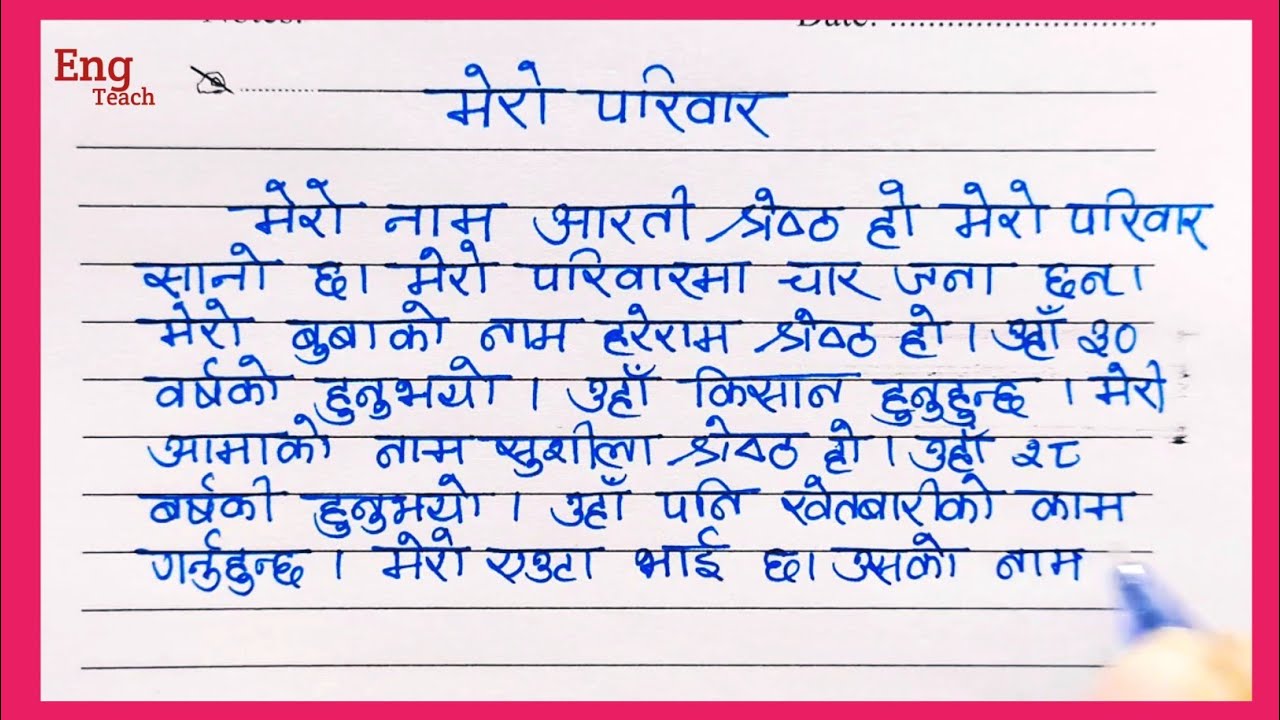 Notes:
Date: ............................
Eng
Teach
मेरो परिवार
मेरो नाम आरती श्रेष्ठ हो मेरो परिवार
सानो छ। मेरो परिवारमा चार जना छन्।
मेरो बुबाको नाम हरेराम श्रेष्ठ हो । उहाँ ३०
वर्षको हुनुभयो । उहाँ किसान हुनुहुन्छ । मेरो
आमाको नाम सुशीला श्रेष्ठ हो । उहाँ २८
बर्षकी हुनुभयो । उहाँ पनि खेतबारीको काम
गर्नुहुन्छ । मेरो एउटा भाई छ। उसको नाम